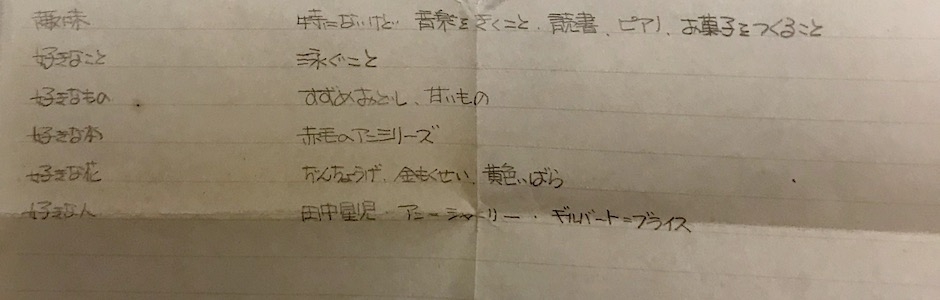 趣味 特にないけど 音楽をきくこと、読書、ピアノ、お菓子をつくること
好きなこと 泳ぐこと
好きなもの すずめおどし、甘いもの
好きな本 赤毛のアンシリーズ
好きな花 ちんちょうげ、金もくせい、黄色いばら
好きな人 田中星児・アン=シャーリー・ギルバート=ブライス